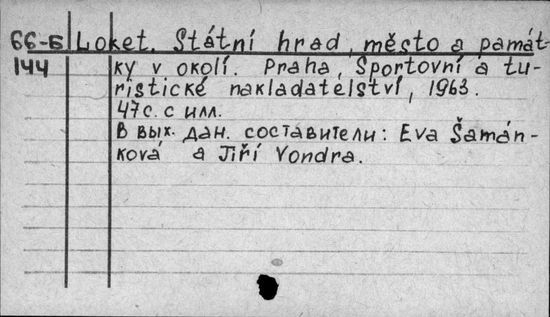 66-Б Loket. Státní hrad, město a památ-
144 ky v okolí. Praha, Sportovní a tu-
ristické nakladatelství, 1963.
47с. с илл.
В вых. дан. составители: Eva Šamán-
ková a Jiří Vondra.